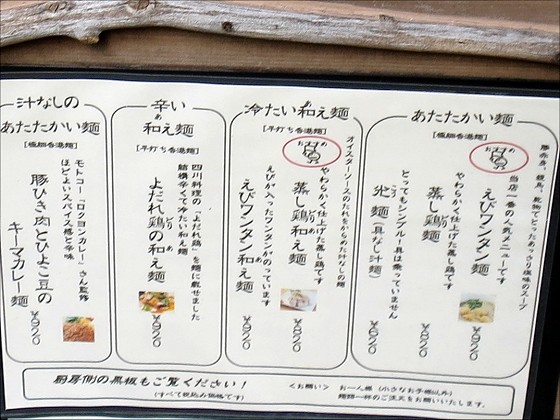 あたたかい麺
[極細香港麺]
豚赤身、鶏肉、乾物でとったあっさり塩味のスープ
おすすめ
えびワンタン麺
当店一番の人気メニューです
¥920
蒸し鶏麺
やわらかく仕上げた蒸し鶏です
¥820
光麺(具なし汁麺)
とってもシンプル!具は乗っていません
¥620
冷たい和え麺
[平打ち香港麺]
オイスターソースのたれをからめた汁なしの麺
おすすめ
蒸し鶏和え麺
やわらかく仕上げた蒸し鶏です
¥820
えびワンタン和え麺
えびが入ったワンタンがのっています
¥920
辛い
和え麺
[平打ち香港麺]
四川料理の「よだれ鶏」を麺に載せました
結構辛くて冷たい和え麺
よだれ鶏の和え麺
¥920
汁なしの
あたたかい麺
[極細香港麺]
モトコー「ロクヨンカレー」さん監修
ほどよいスパイス感と辛味
豚ひき肉とひよこ豆の
キーマカレー麺
¥920
厨房側の黒板もご覧ください!
(すべて税込み価格です)
<お願い> お一人様(小さなお子様以外)
麺類一杯のご注文をお願いいたします。